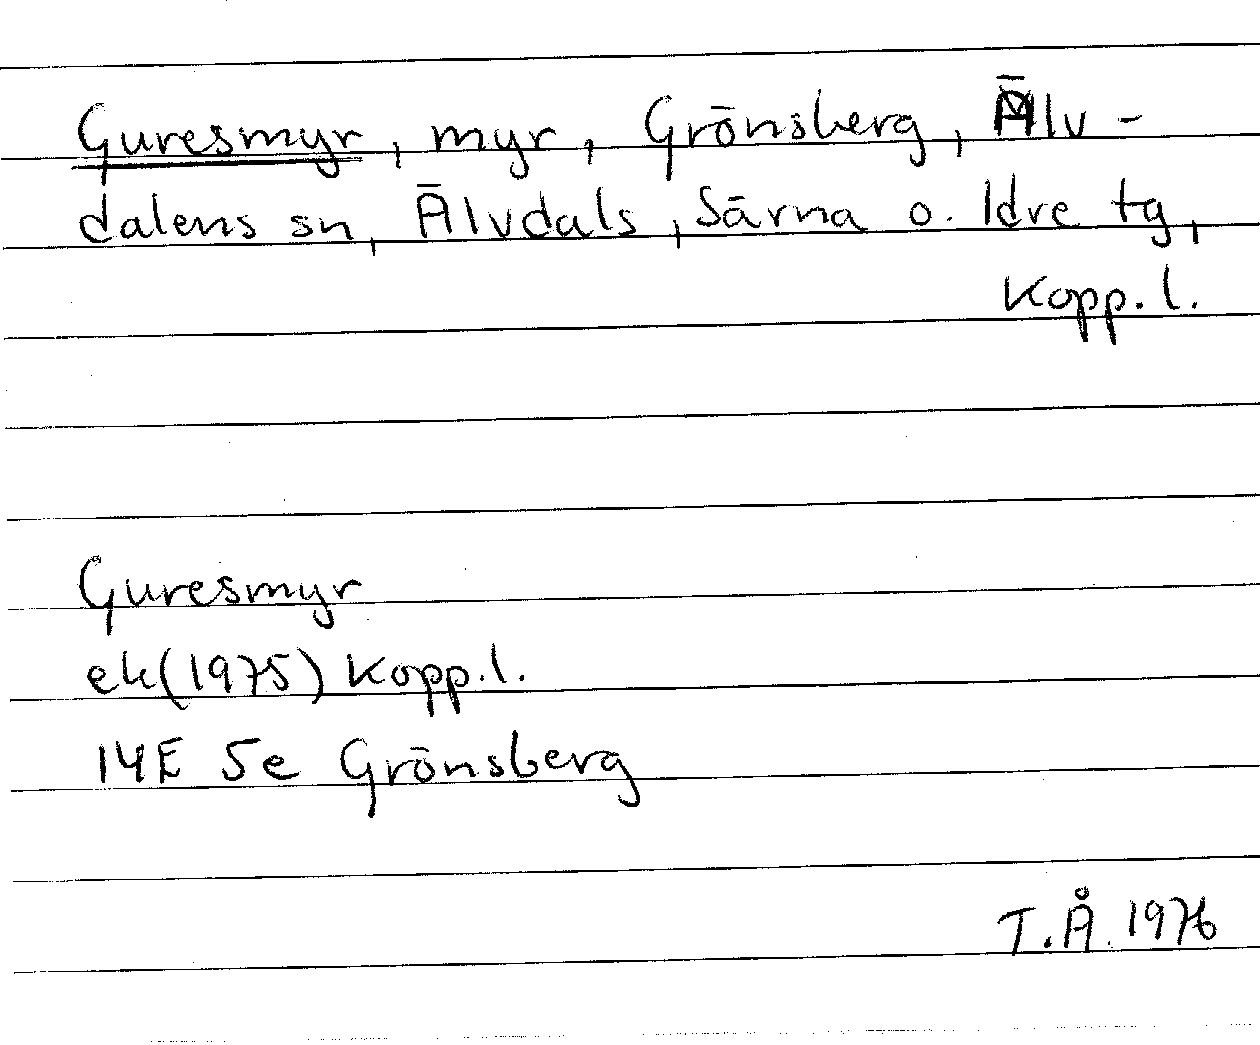 Guresmyr, myr, Grönsberg, Älv-
dalens sn, Älvdals, Särna o. Idre tg,
Kopp. l.
Guresmyr
ek(1975) Kopp.l.
14E 5e Grönsberg
T.Å. 1976